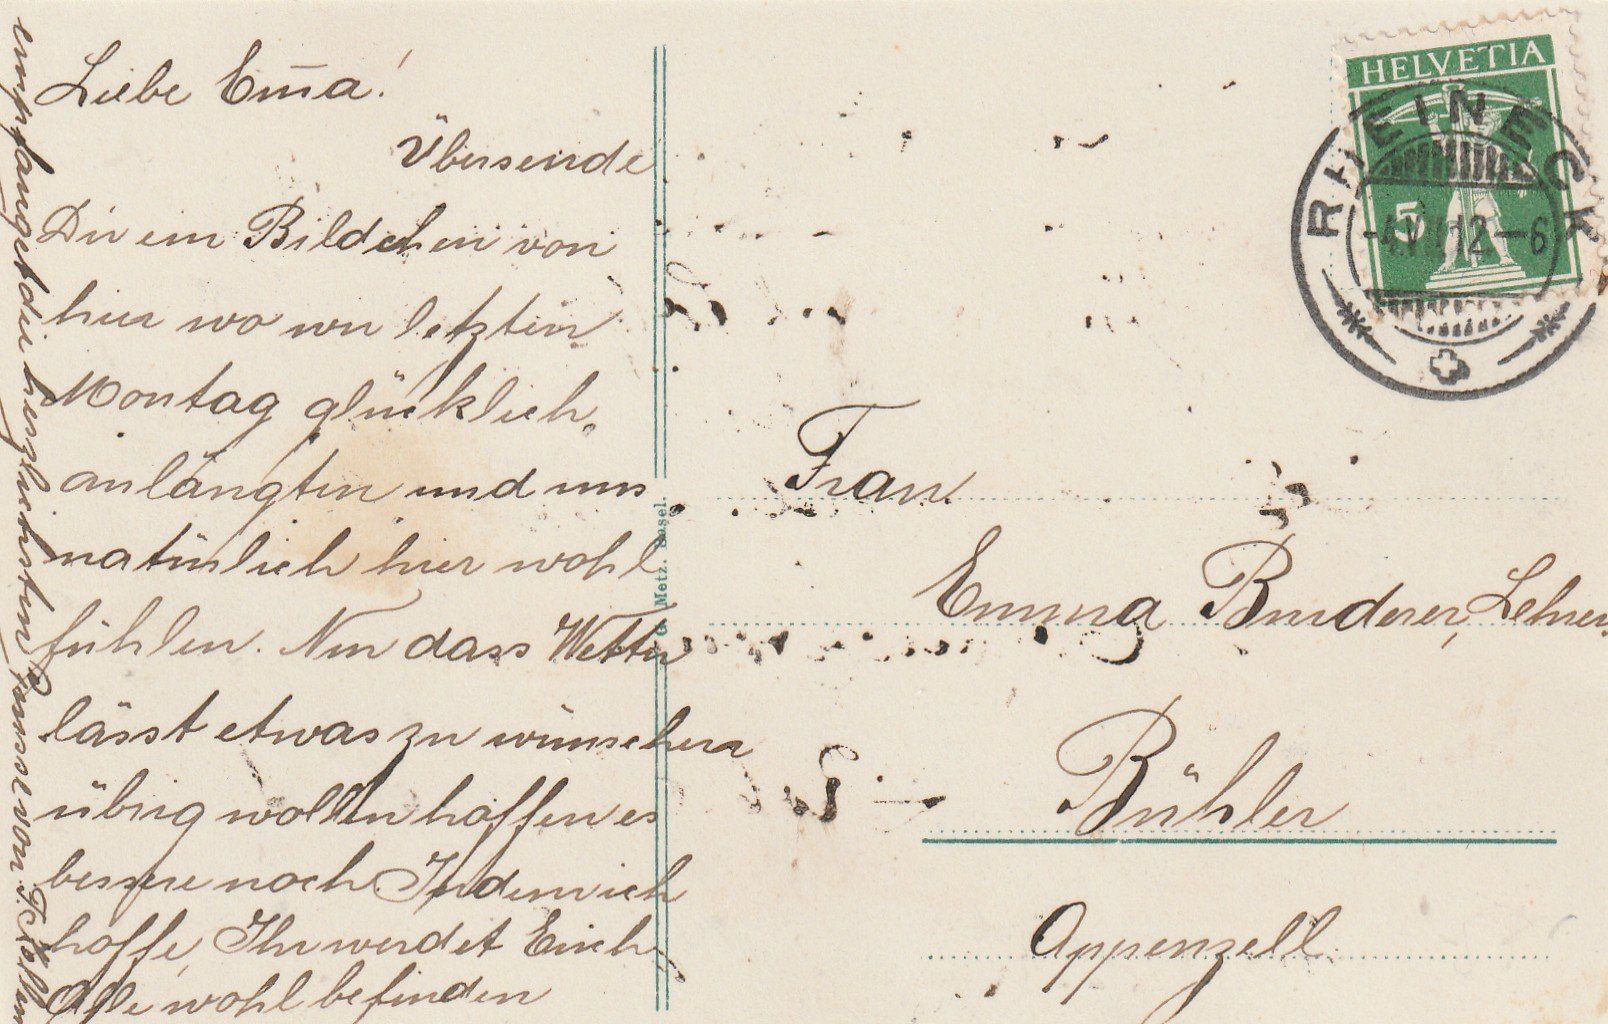 Liebe Em̄a!
Übersende
Dir ein Bildchen von
hier wo wir letzten
Montag glücklich
anlängten und uns
natürlich hier wohl
fühlen. Nur dass Wetter
lässt etwas zu wünschen
übrig wollen hoffen es
bessere noch Indem ich
hoffe, Ihr werdet Euch
Alle wohl befinden
empfanget die herzlichsten Grüsse von
HELVETIA
5
RHEINECK
12-6
Metz. Basel.
Frau
Emma Bruderer, Lehrer
Bühler
Appenzell.